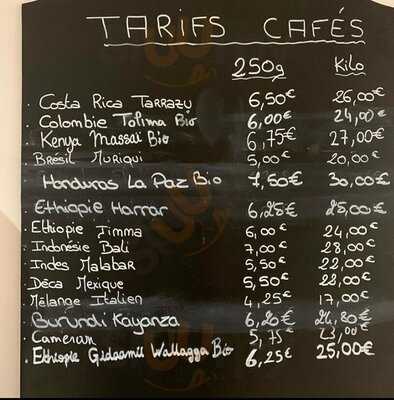 TARIFS CAFÉS
250g Kilo
. Costa Rica Tarrazu 6,50€ 26,00€
. Colombie Tolima Bio 6,00€ 24,00€
. Kenya Massai Bio 6,75€ 27,00€
. Brésil Muriqui 5,00€ 20,00€
. Honduras La Paz Bio 7,50€ 30,00€
. Ethiopie Harrar 6,25€ 25,00€
. Ethiopie Jimma 6,00€ 24,00€
. Indonésie Bali 7,00€ 28,00€
. Indes Malabar 5,50€ 22,00€
. Déca Mexique 5,50€ 22,00€
. Mélange Italien 4,25€ 17,00€
. Burundi Kayanza 6,20€ 24,80€
. Cameroun 5,75€ 23,00€
. Ethiopie Gidaamil Wallagga Bio 6,25€ 25,00€